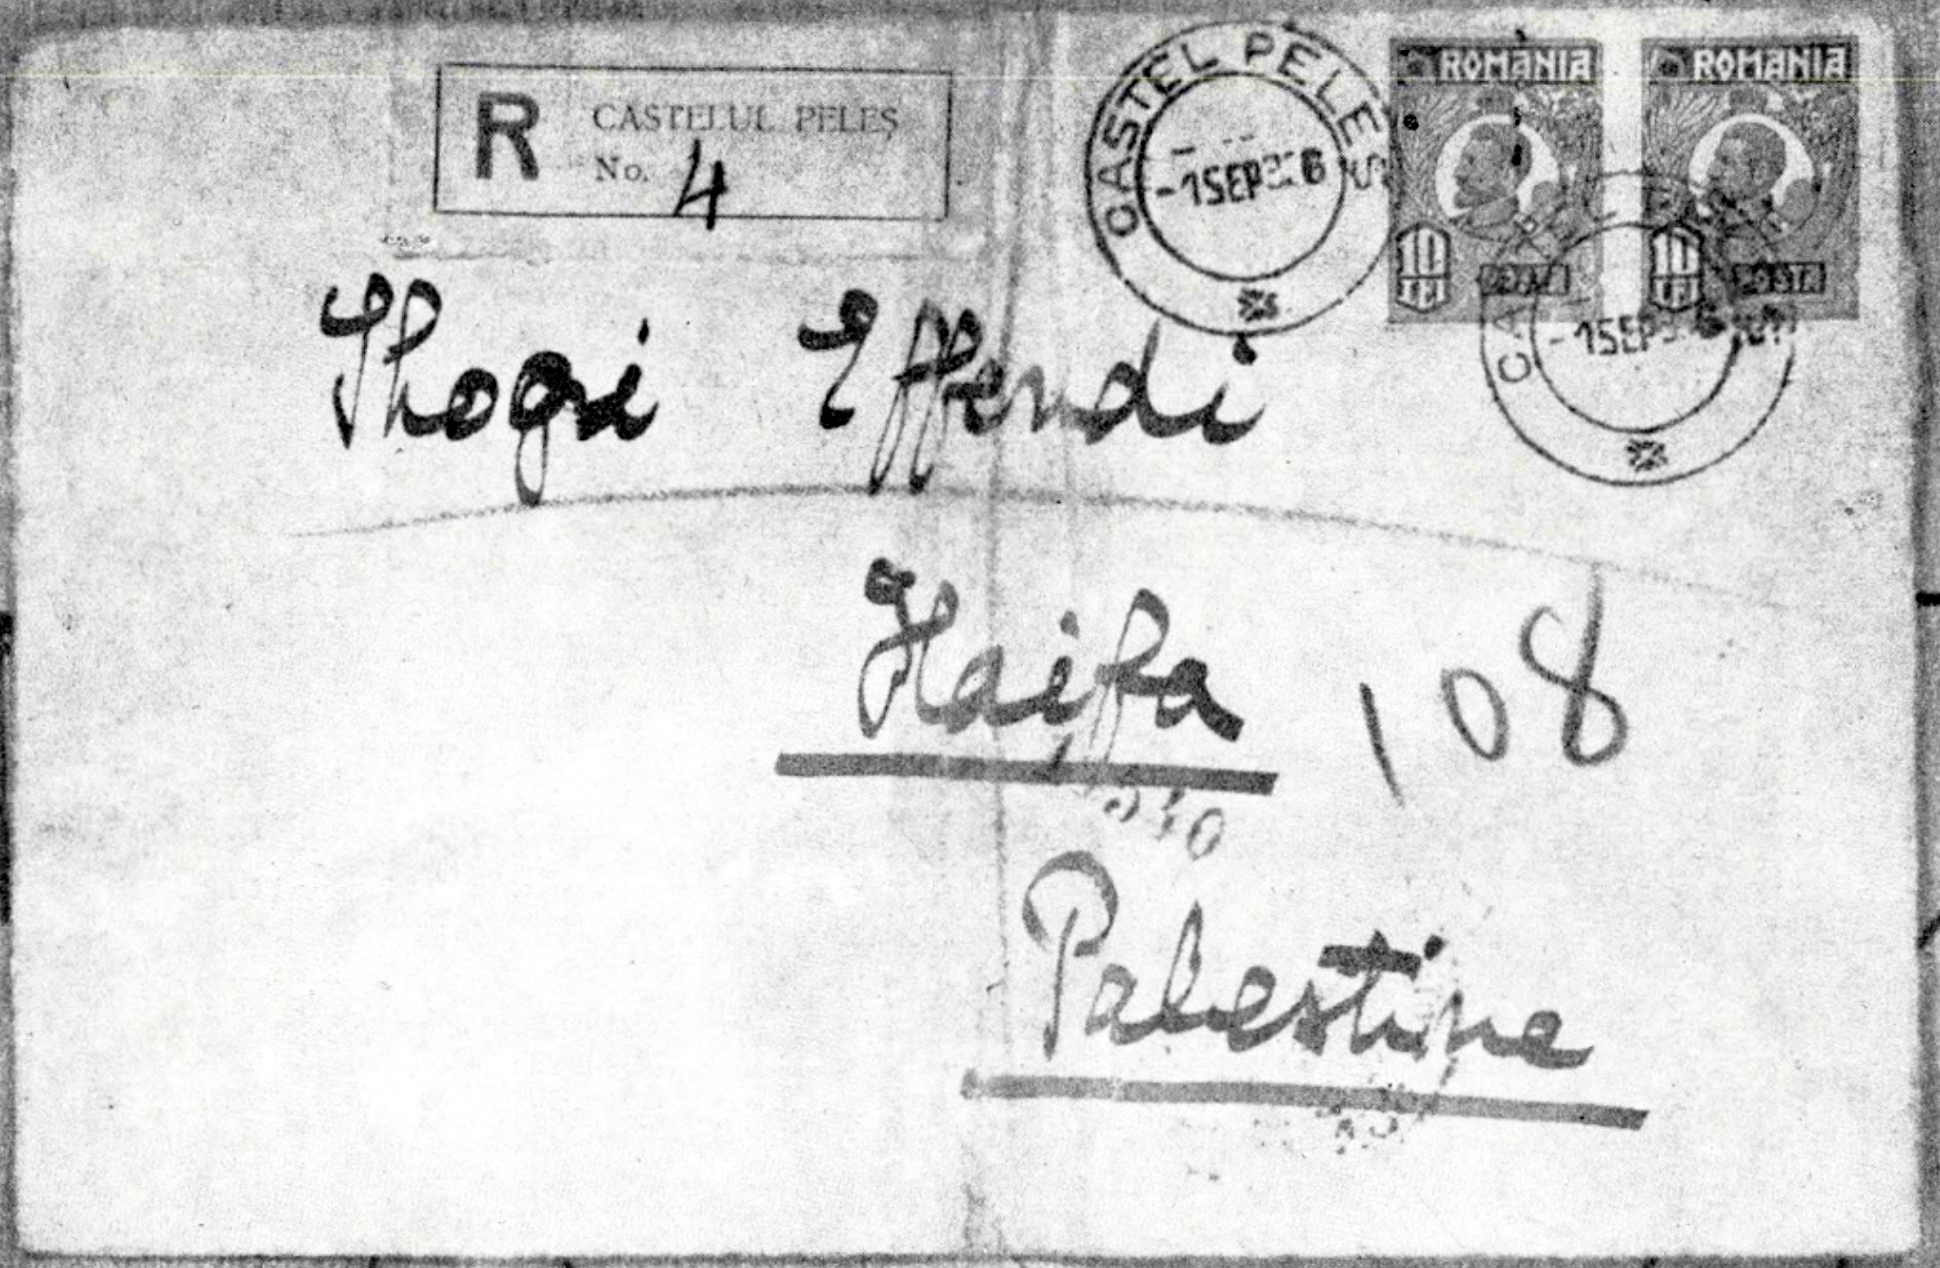 R CASTELUL PELEȘ
No. 4
CASTEL PELEȘ
-1SEP
ROMANIA
10 LEI
POSTA
ROMANIA
10 LEI
POSTA
-1SEP
Shogi Effendi
Haifa
108
Palestine